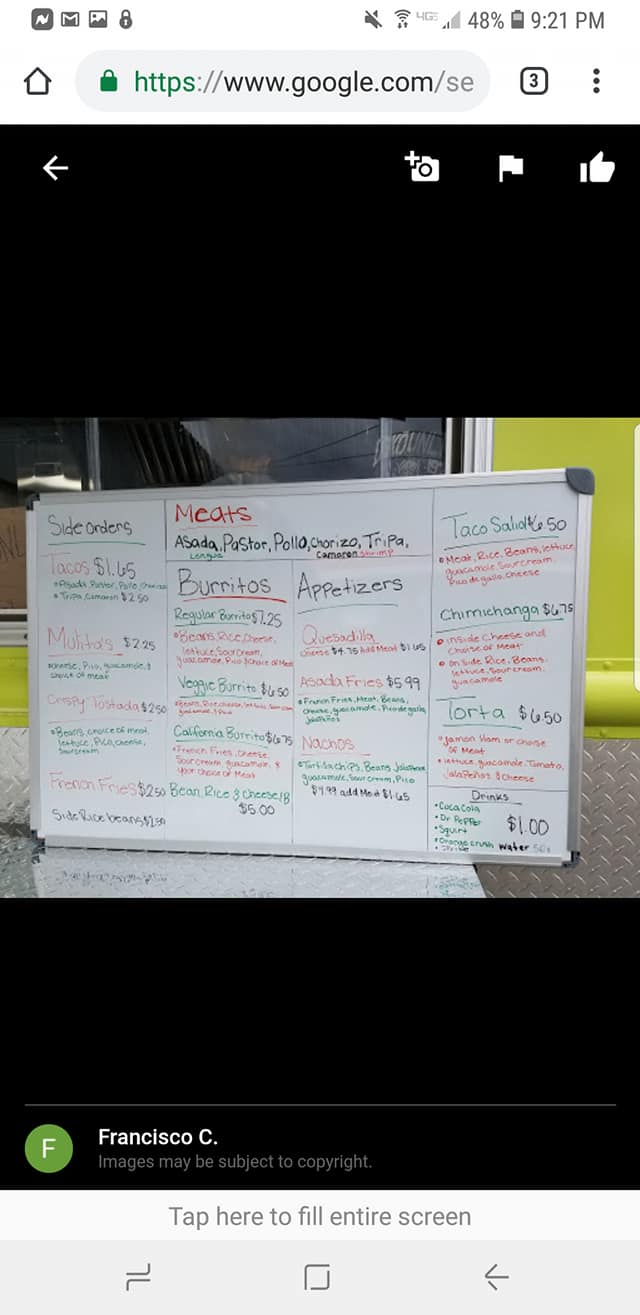 48% 9:21 PM
https://www.google.com/se
3
Side orders
Tacos $1.65
Asada, Pastor, Pollo, Chorizo
Tripa, Camaron $2.50
$2.25
cheese, Pico, guacamole, &
choice of meat
Crispy Tostada $2.50
Beans, choice of meat,
lettuce, Pico, cheese,
sourcream
French Fries $2.50
Side Rice beans
Meats
Asada, Pastor, Pollo, chorizo, TriPa,
Lengua Camaron shrimp
Burritos
Regular Burrito $7.25
Beans, Rice, cheese,
lettuce, Sour Cream,
guacamole, Pico & choice of Meat
Veggie Burrito $6.50
Beans, Rice, cheese, lettuce, Sour cream
guacamole, & Pico
California Burrito $6.75
French Fries, cheese,
Sour cream guacamole, &
Your choice of Meat
Bean, Rice & cheese/B
$5.00
Appetizers
Quesadilla
cheese $4.75 Add Meat $1.65
Asada Fries $5.99
French Fries, Meat, Beans,
cheese, guacamole, Pico de gallo,
Nachos
Tortilla chips, Beans
guacamole, Sour cream, Pico
$4.99 add Meat $1.65
Taco Salid 6.50
Meat, Rice, Beans, lettuce,
guacamole, Sour cream,
Pico de gallo, cheese
Chimichanga $6.75
inside cheese and
Choise of Meat
on side Rice, Beans,
lettuce, Sour cream,
guacamole
Torta $6.50
Jamon Ham or choise
of Meat
lettuce, guacamole, Tomato,
JalaPeños & cheese
Drinks
Coca Cola
Dr PePPer
Squirt
$1.00
Orange crush water 50¢
F
Francisco C.
Images may be subject to copyright.
Tap here to fill entire screen